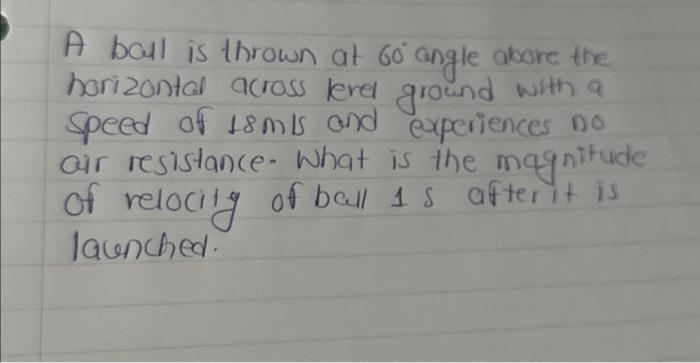 A ball is thrown at 60° angle above the
horizontal across level ground with a
speed of 18m/s and experiences no
air resistance. What is the magnitude
of velocity of ball 1 s after it is
launched.